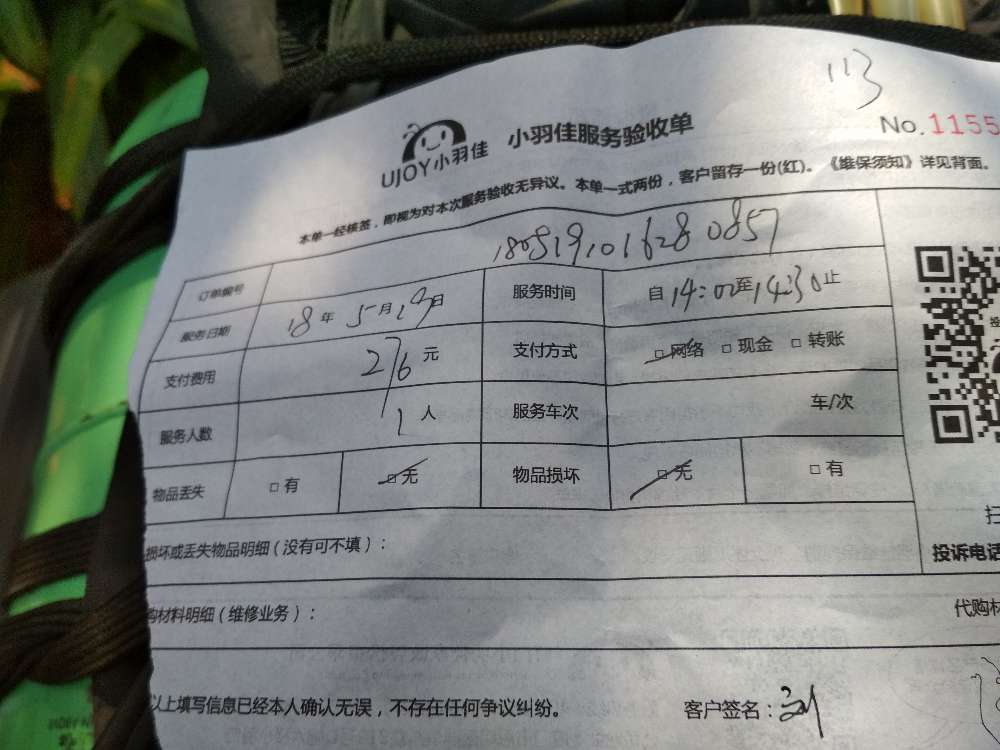 113
UJOY小羽佳 小羽佳服务验收单 No.1155
本单一经核签，即视为对本次服务验收无异议。本单一式两份，客户留存一份(红)。《维保须知》详见背面。
订单编号 1805191016280857
服务日期 18年5月19日 服务时间 自14:02至14:30止
支付费用 276元 支付方式 □网络 □现金 □转账
服务人数 1人 服务车次 车/次
物品丢失 □有 □无 物品损坏 □无 □有
损坏或丢失物品明细（没有可不填）：
扫
投诉电话
购材料明细（维修业务）： 代购材
以上填写信息已经本人确认无误，不存在任何争议纠纷。 客户签名：刘